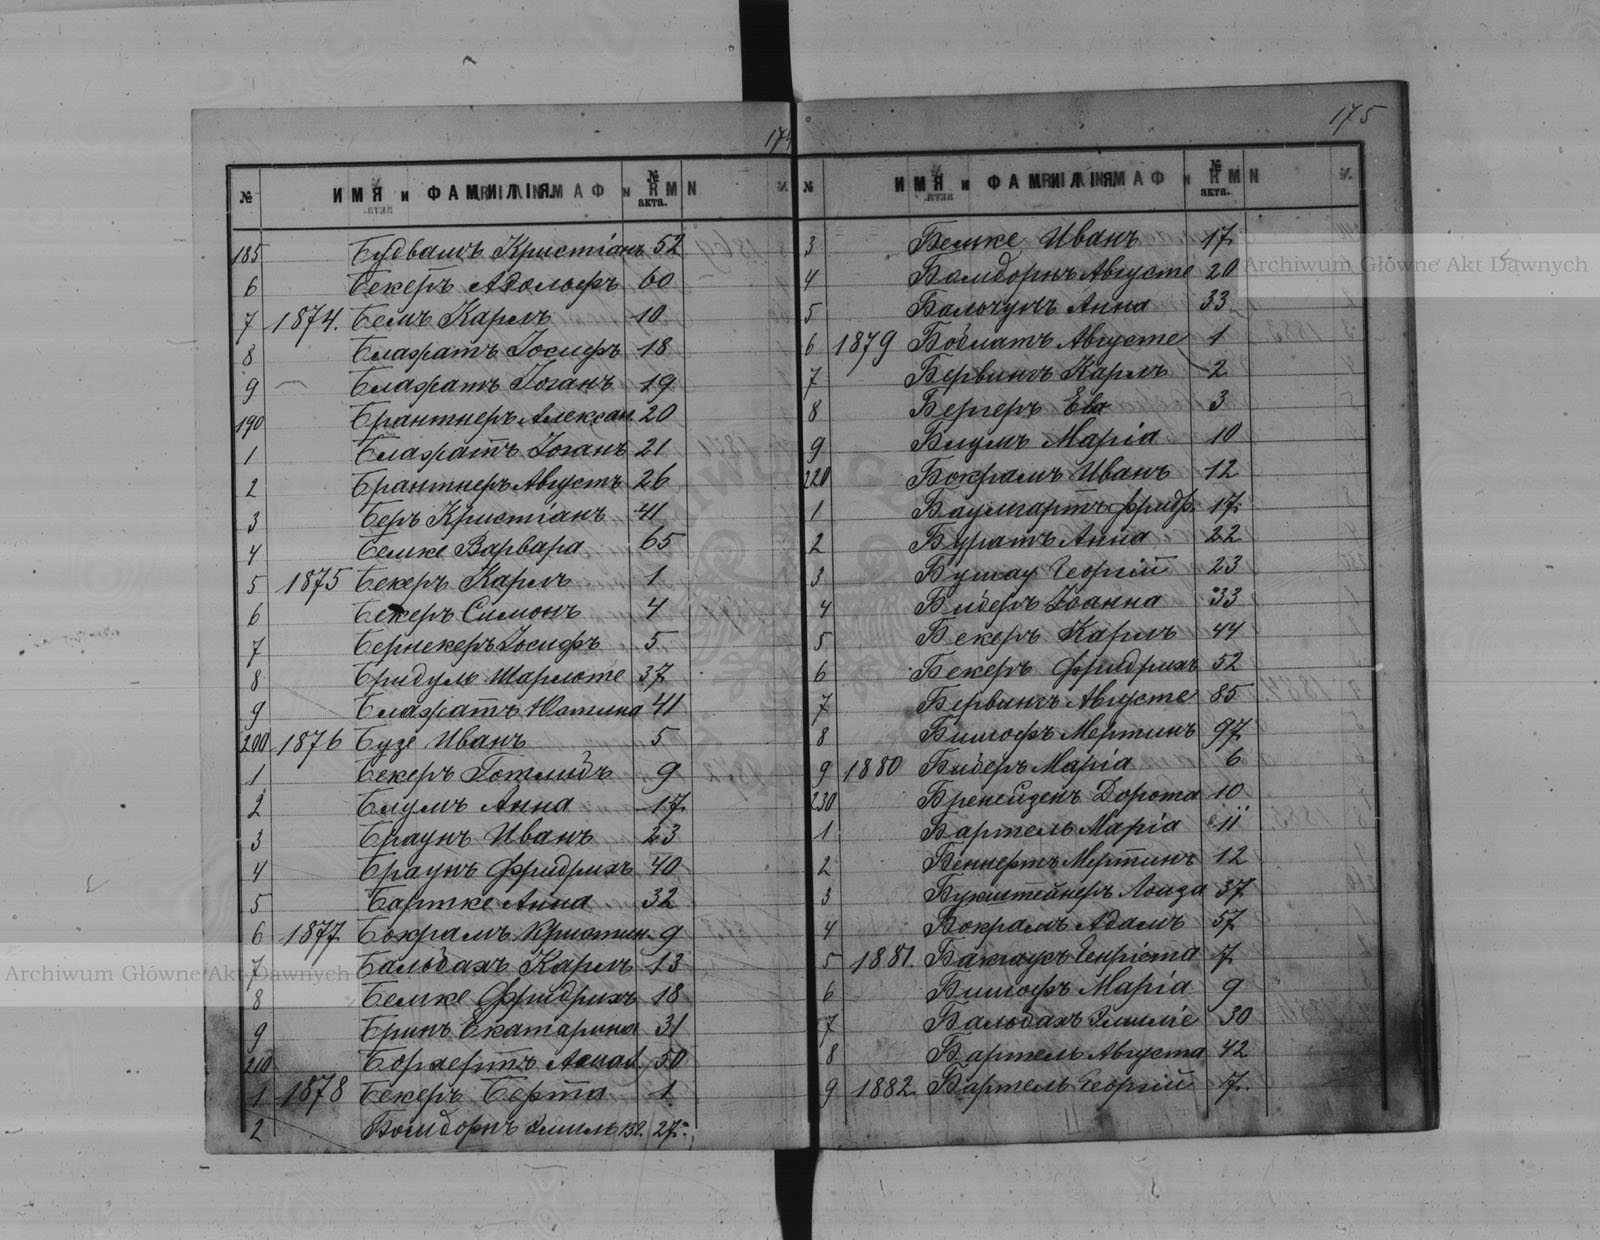 174
№ ИМЯ и ФАМИЛІЯ. № акта.
185 Будвамъ Кристіанъ 52
6 Бекеръ Адольфъ 60
7 1874. Бемъ Карлъ 10
8 Блазратъ Іосифъ 18
9 Блазратъ Іоганъ 19
190 Брантнеръ Алексан. 20
1 Блазратъ Іоганъ 21
2 Брантнеръ Августъ 26
3 Беръ Кристіанъ 41
4 Бемке Варвара 65
5 1875 Бекеръ Карлъ 1
6 Бекеръ Симонъ 4
7 Бернекеръ Іосифъ 5
8 Бридуль Шарлоте 37
9 Блазратъ Юстина 41
200 1876 Бузе Иванъ 5
1 Бекеръ Готлибъ 9
2 Блумъ Анна 17
3 Браунъ Иванъ 23
4 Браунъ Фридрихъ 40
5 Бартке Анна 32
6 1877 Бокрамъ Кристин. 9
7 Бальбахъ Карлъ 13
8 Бемке Фридрихъ 18
9 Бринъ Екатарина 31
210 Борхертъ 50
1 1878 Бекеръ Берта 1
2 Бомборнъ Эмиль 132. 27.
175
№ ИМЯ и ФАМИЛІЯ. № акта.
3 Бемке Иванъ 17
4 Бомборнъ Августе 20
5 Бальчунъ Анна 33
6 1879 Боблатъ Августе 1
7 Бервингъ Карлъ 2
8 Бергеръ Ева 3
9 Блумъ Марія 10
220 Бокрамъ Иванъ 12
1 Баумгартъ Фридр. 17.
2 Буратъ Анна 22
3 Бушау Георгій 23
4 Бидеръ Іоанна 33
5 Бекеръ Карлъ 44
6 Бекеръ Фридрихъ 52
7 Бервингъ Августе 85
8 Бишофъ Мертинъ 97
9 1880 Бидеръ Марія 6
230 Бренейзенъ Дорота 10
1 Бартель Марія 11
2 Беннертъ Мертинъ 12
3 Букштейнеръ Лоиза 37
4 Бокрамъ Адамъ 57
5 1881. Бакгаусъ Генріета 7
6 Бишофъ Марія 9
7 Бальбахъ Эмиліе 30
8 Бартель Августа 42
9 1882. Бартель Георгій 7.
Archiwum Główne Akt Dawnych
Archiwum Główne Akt Dawnych